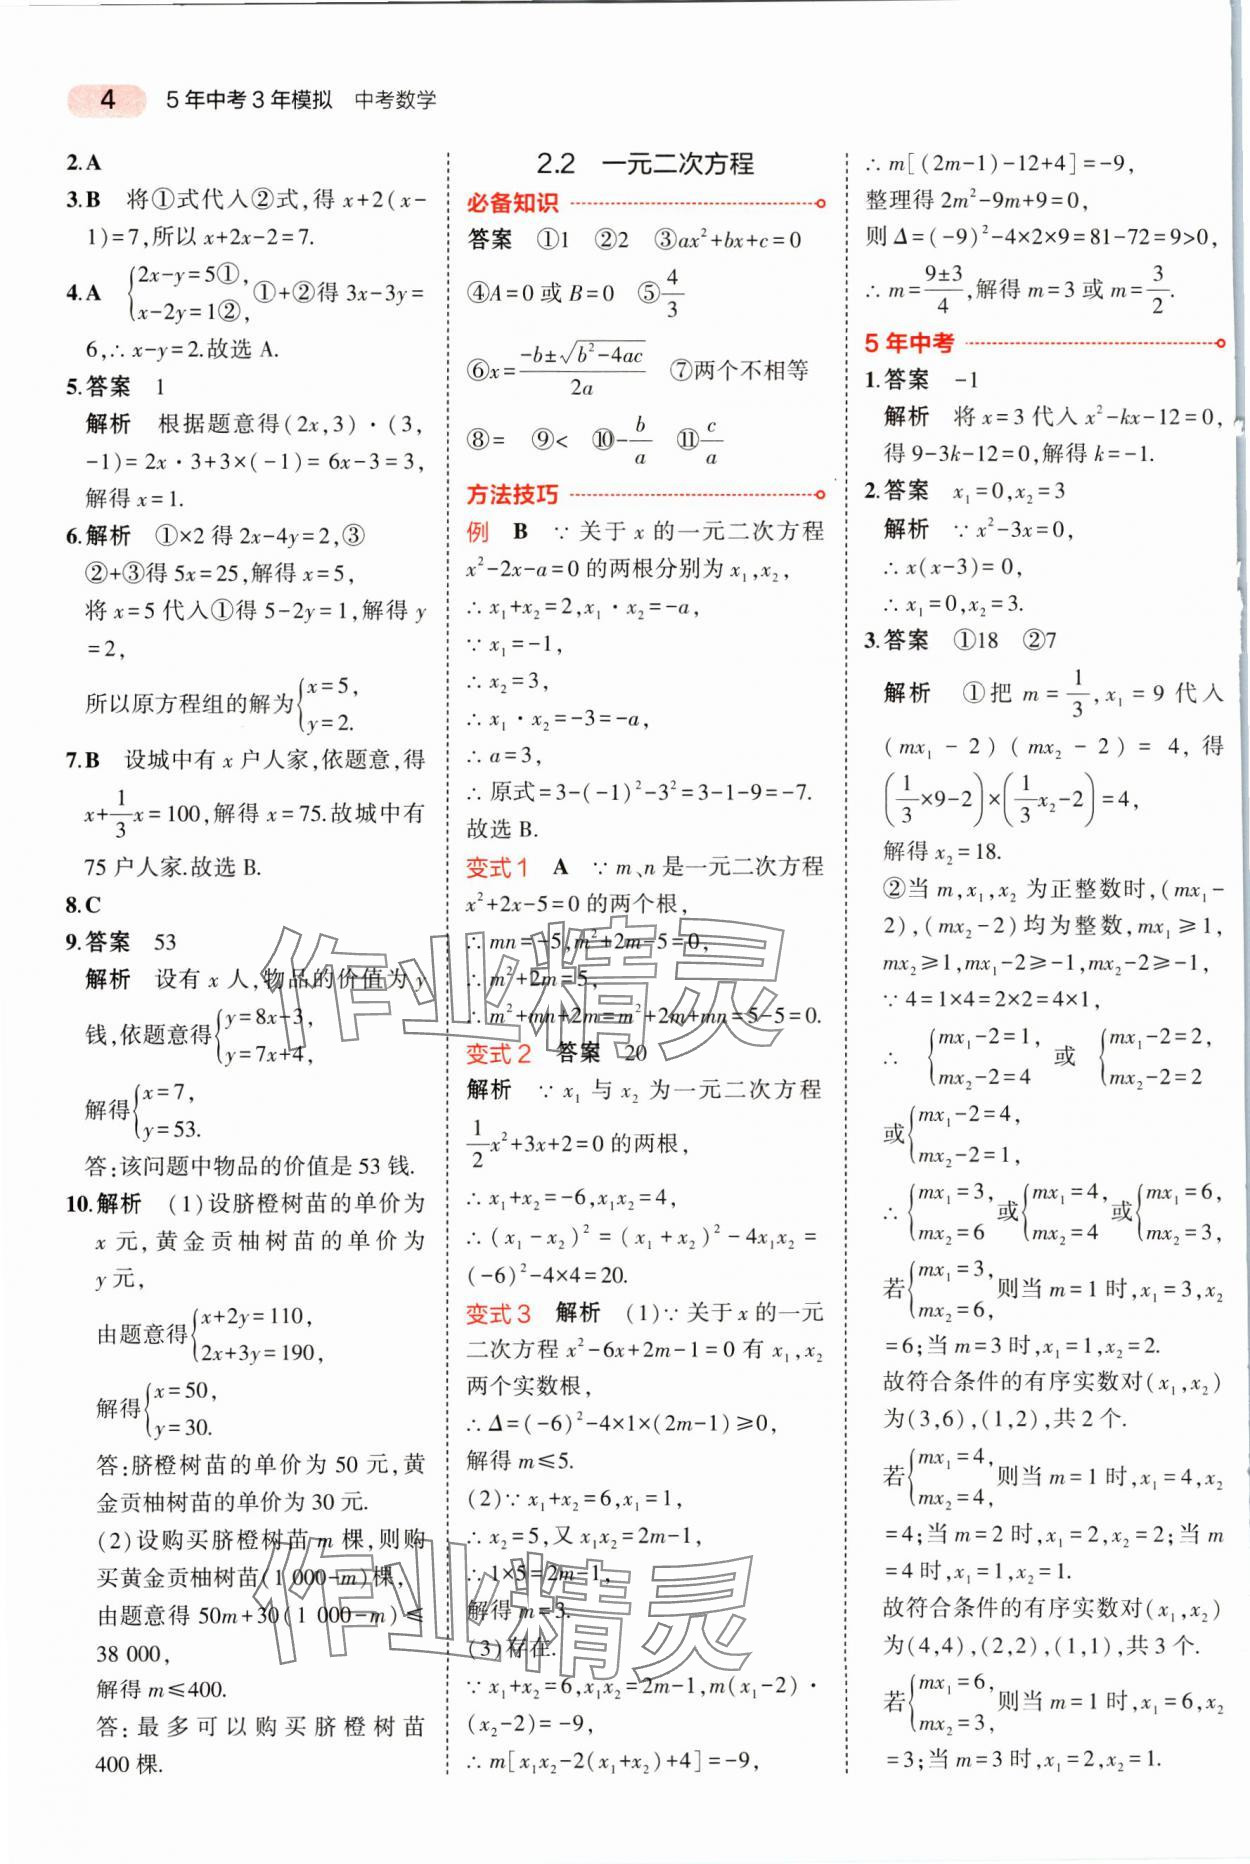 4　5年中考3年模拟　中考数学
2.A
3.B　将①式代入②式,得 x+2(x-
1)=7,所以 x+2x-2=7.
4.A　{2x-y=5①, x-2y=1②, ①+②得 3x-3y=
6,∴x-y=2.故选 A.
5.答案　1
解析　根据题意得(2x,3)·(3,
-1)=2x·3+3×(-1)=6x-3=3,
解得 x=1.
6.解析　①×2得 2x-4y=2,③
②+③得 5x=25,解得 x=5,
将 x=5 代入①得 5-2y=1,解得 y
=2,
所以原方程组的解为{x=5, y=2.
7.B　设城中有 x 户人家,依题意,得
x+1/3x=100,解得 x=75.故城中有
75 户人家.故选 B.
8.C
9.答案　53
解析　设有 x 人,物品的价值为 y
钱,依题意得{y=8x-3, y=7x+4,
解得{x=7, y=53.
答:该问题中物品的价值是 53 钱.
10.解析　(1)设脐橙树苗的单价为
x 元,黄金贡柚树苗的单价为
y 元,
由题意得{x+2y=110, 2x+3y=190,
解得{x=50, y=30.
答:脐橙树苗的单价为 50 元,黄
金贡柚树苗的单价为 30 元.
(2)设购买脐橙树苗 m 棵,则购
买黄金贡柚树苗(1 000-m)棵,
由题意得 50m+30(1 000-m)≤
38 000,
解得 m≤400.
答:最多可以购买脐橙树苗
400 棵.
2.2　一元二次方程
必备知识
答案　①1　②2　③ax²+bx+c=0
④A=0 或 B=0　⑤4/3
⑥x=(-b±√(b²-4ac))/2a　⑦两个不相等
⑧=　⑨<　⑩-b/a　⑪c/a
方法技巧
例　B　∵关于 x 的一元二次方程
x²-2x-a=0 的两根分别为 x₁,x₂,
∴x₁+x₂=2,x₁·x₂=-a,
∵x₁=-1,
∴x₂=3,
∴x₁·x₂=-3=-a,
∴a=3,
∴原式=3-(-1)²-3²=3-1-9=-7.
故选 B.
变式1　A　∵m、n 是一元二次方程
x²+2x-5=0 的两个根,
∴mn=-5,m²+2m-5=0,
∴m²+2m=5,
∴m²+mn+2m=m²+2m+mn=5-5=0.
变式2　答案　20
解析　∵x₁ 与 x₂ 为一元二次方程
1/2x²+3x+2=0 的两根,
∴x₁+x₂=-6,x₁x₂=4,
∴(x₁-x₂)²=(x₁+x₂)²-4x₁x₂=
(-6)²-4×4=20.
变式3　解析　(1)∵关于 x 的一元
二次方程 x²-6x+2m-1=0 有 x₁,x₂
两个实数根,
∴Δ=(-6)²-4×1×(2m-1)≥0,
解得 m≤5.
(2)∵x₁+x₂=6,x₁=1,
∴x₂=5,又 x₁x₂=2m-1,
∴1×5=2m-1,
解得 m=3.
(3)存在.
∵x₁+x₂=6,x₁x₂=2m-1,m(x₁-2)·
(x₂-2)=-9,
∴m[x₁x₂-2(x₁+x₂)+4]=-9,
∴m[(2m-1)-12+4]=-9,
整理得 2m²-9m+9=0,
则 Δ=(-9)²-4×2×9=81-72=9>0,
∴m=(9±3)/4,解得 m=3 或 m=3/2.
5年中考
1.答案　-1
解析　将 x=3 代入 x²-kx-12=0,
得 9-3k-12=0,解得 k=-1.
2.答案　x₁=0,x₂=3
解析　∵x²-3x=0,
∴x(x-3)=0,
∴x₁=0,x₂=3.
3.答案　①18　②7
解析　①把 m=1/3,x₁=9 代入
(mx₁-2)(mx₂-2)=4,得
(1/3×9-2)×(1/3x₂-2)=4,
解得 x₂=18.
②当 m,x₁,x₂ 为正整数时,(mx₁-
2),(mx₂-2)均为整数,mx₁≥1,
mx₂≥1,mx₁-2≥-1,mx₂-2≥-1,
∵4=1×4=2×2=4×1,
∴{mx₁-2=1, mx₂-2=4 或 {mx₁-2=2, mx₂-2=2
或{mx₁-2=4, mx₂-2=1,
∴{mx₁=3, mx₂=6 或{mx₁=4, mx₂=4 或{mx₁=6, mx₂=3,
若{mx₁=3, mx₂=6, 则当 m=1 时,x₁=3,x₂
=6;当 m=3 时,x₁=1,x₂=2.
故符合条件的有序实数对(x₁,x₂)
为(3,6),(1,2),共 2 个.
若{mx₁=4, mx₂=4, 则当 m=1 时,x₁=4,x₂
=4;当 m=2 时,x₁=2,x₂=2;当 m
=4 时,x₁=1,x₂=1.
故符合条件的有序实数对(x₁,x₂)
为(4,4),(2,2),(1,1),共 3 个.
若{mx₁=6, mx₂=3, 则当 m=1 时,x₁=6,x₂
=3;当 m=3 时,x₁=2,x₂=1.
作业精灵
作业精灵